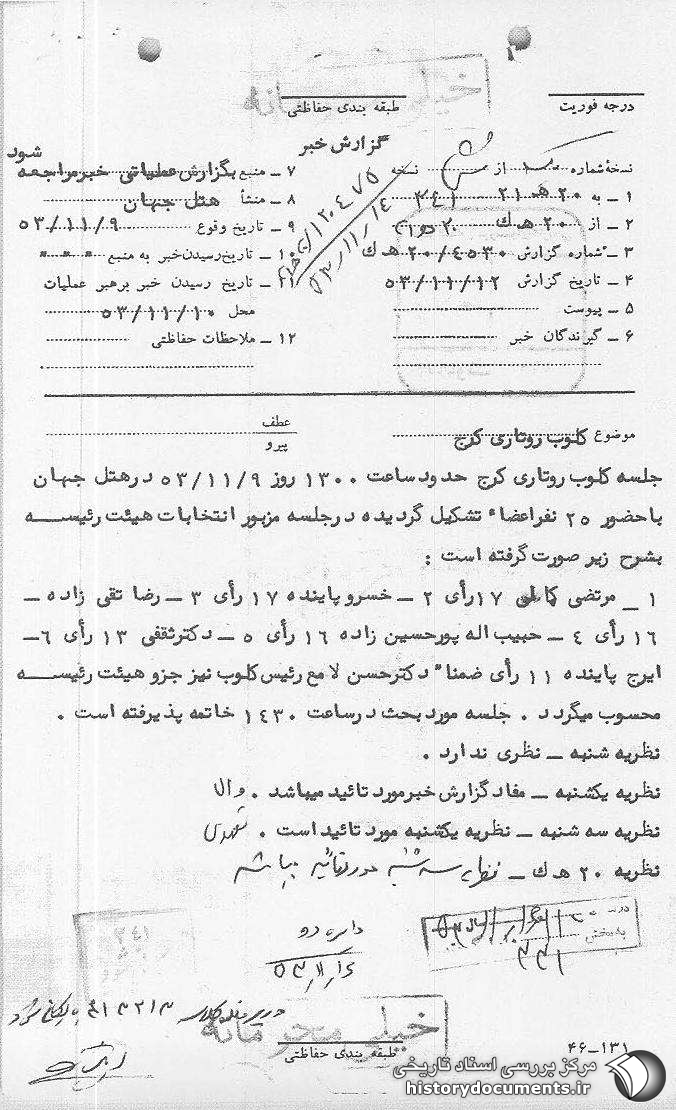 خیلی محرمانه
درجه فوریت
طبقه بندی حفاظتی
گزارش خبر
نسخهٔ شماره ۱ از نسخه
۱ ـ به ۲۰ هـ ۲۱ ۳۴۱
۲ ـ از ۲۰ هـ ك
۳ ـ شماره گزارش ۲۰/۴۵۳۰ هـ ك
۴ ـ تاریخ گزارش ۵۳/۱۱/۱۲
۵ ـ پیوست
۶ ـ گیرندگان خبر
۷ ـ منبع بگزارش عملیاتی خبر مراجعه شود
۸ ـ منشأ هتل جهان
۹ ـ تاریخ وقوع ۵۳/۱۱/۹
۱۰ ـ تاریخ رسیدن خبر به منبع
۱۱ ـ تاریخ رسیدن خبر برهبر عملیات
محل ۵۳/۱۱/۱۰
۱۲ ـ ملاحظات حفاظتی
موضوع کلوب روتاری کرج
عطف
پیرو
جلسه کلوب روتاری کرج حدود ساعت ۱۳۰۰ روز ۵۳/۱۱/۹ در هتل جهان
با حضور ۲۵ نفر اعضاء تشکیل گردیده در جلسه مزبور انتخابات هیئت رئیسه
بشرح زیر صورت گرفته است :
۱ ـ مرتضی ۱۷ رأی ۲ ـ خسرو پاینده ۱۷ رأی ۳ ـ رضا تقی زاده ـ
۱۶ رأی ۴ ـ حبیب اله پورحسین زاده ۱۶ رأی ۵ ـ دکتر ثقفی ۱۳ رأی ۶ ـ
ایرج پاینده ۱۱ رأی ضمناً دکتر حسن لامع رئیس کلوب نیز جزو هیئت رئیسه
محسوب میگردد . جلسه مورد بحث در ساعت ۱۴۳۰ خاتمه پذیرفته است .
نظریه شنبه ـ نظری ندارد .
نظریه یکشنبه ـ مفاد گزارش خبر مورد تائید میباشد . والا
نظریه سه شنبه ـ نظریه یکشنبه مورد تائید است .
نظریه ۲۰ هـ ك ـ نظریه سه شنبه مورد تائید میباشد
دایره دو
خیلی محرمانه
طبقه بندی حفاظتی
۴۶ـ۱۳۱
مرکز بررسی اسناد تاریخی
historydocuments.ir